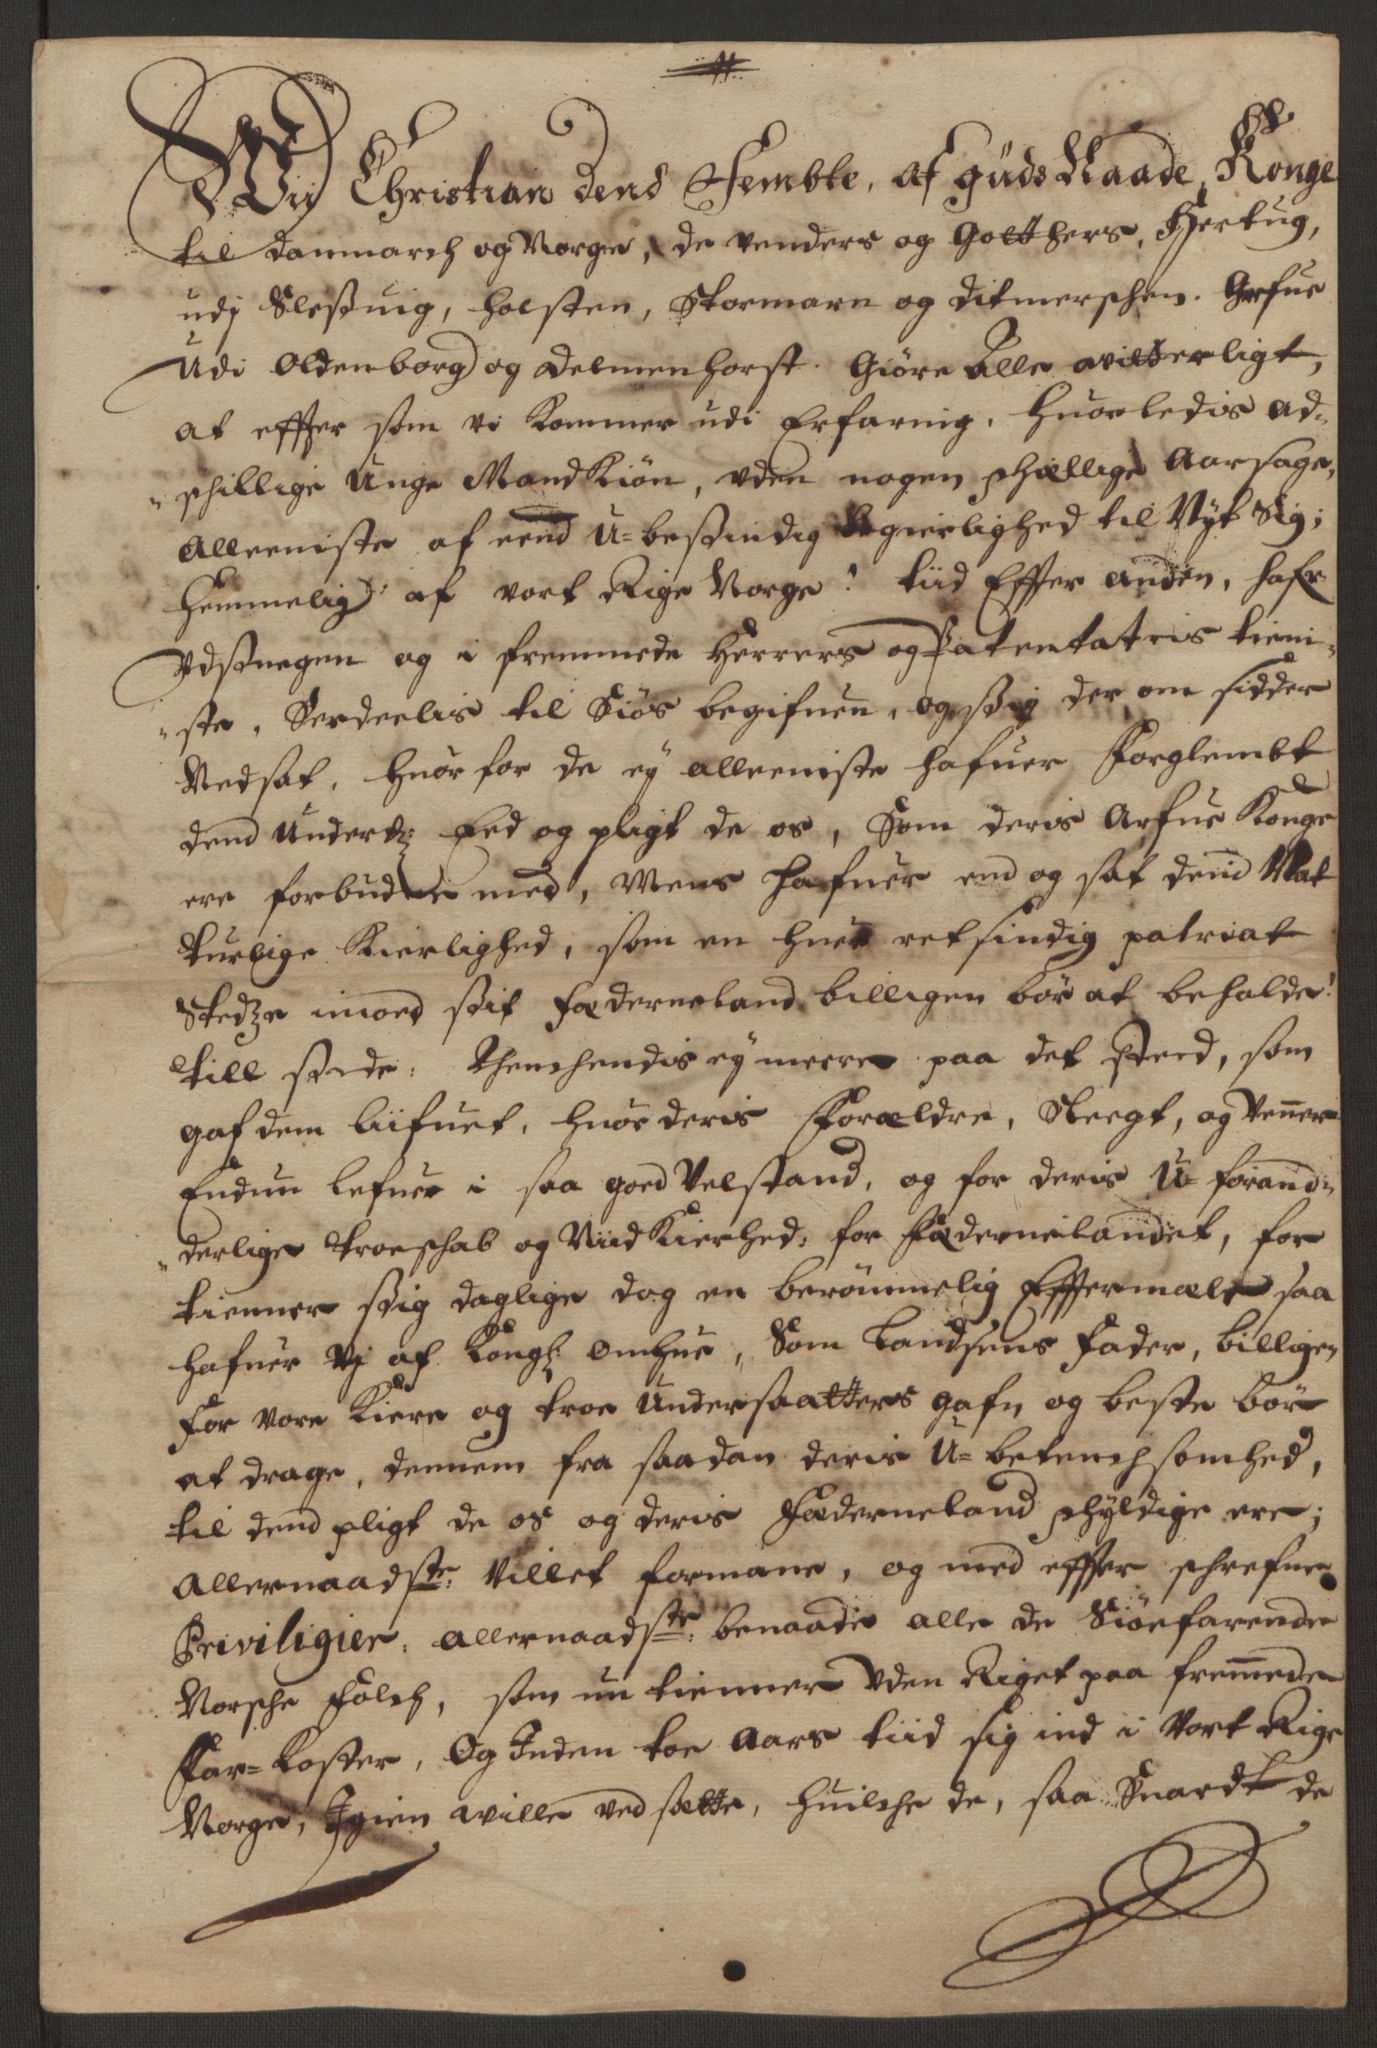 Wii Christian dend Fembte, af Guds Naade, Konge
til danmarch og Norge, de venders og Gotthers, Hertug,
udj Slessuig, holsten, Stormarn og ditmerschen. Grefue
Udi Oldenborg og Delmenhorst. Giöre Alle witterligt,
at effter som vi kommer udi Erfarnig, huorledis ad„
„schillige Unge MandKiön, vden nogen schællige Aarsage,
Alleeniste af eend U=bestindig begierlighed til Nyt Sig;
hemmelig af vort Rige Norge! tiid Effter anden, hafr
Vdsneegen og i fremmede Herrers og Patentatris tieni„
„ste, Serdeelis til Siös begifuen, og sig der om sidder
Nedsat, huor for de ey alleeniste hafuer Forglembt
dend underd: Eed og pligt de os, Som deris Arfue Konge
ere forbudne med, Mens hafuer end og sat dend Nat
turlige Kierlighed, som en huer retsindig patriat
Stedze imoed sit Fæderneland billigen bör at beholde!
till side: thenchendis ey meere paa det steed, som
gaf dem liifuet, huor deris Forældre, Sleegt, og Venner
Endnu lefuer i saa goed Velstand, og for deris U=forand„
„derlige troeschab og NiidKierhed, for Fæderneelandet, for
tienner sig daglige dog en berömmelig Efftermæle saa
hafuer Vj af Kongl: omhue, Som Landsens Fader, billigen
For vore Kiere og troe Undersaatters gafn og beste bör
at drage, dennem fra saadan deris U=betenchsomhed,
til dend pligt de os og deris Fæderneland schyldige ere;
Allernaadste: Villet formane, og med effter schrefne
Priviligier, allernaadste: benaade alle de Siöefarende
Norsche Folch, som nu tienner vden Riget paa fremmede
Far=Koster, Og Inden toe Aars tiid sig ind i Vort Rige
Norge, Igien wille ved sætte, huilche de, saa Snardt de